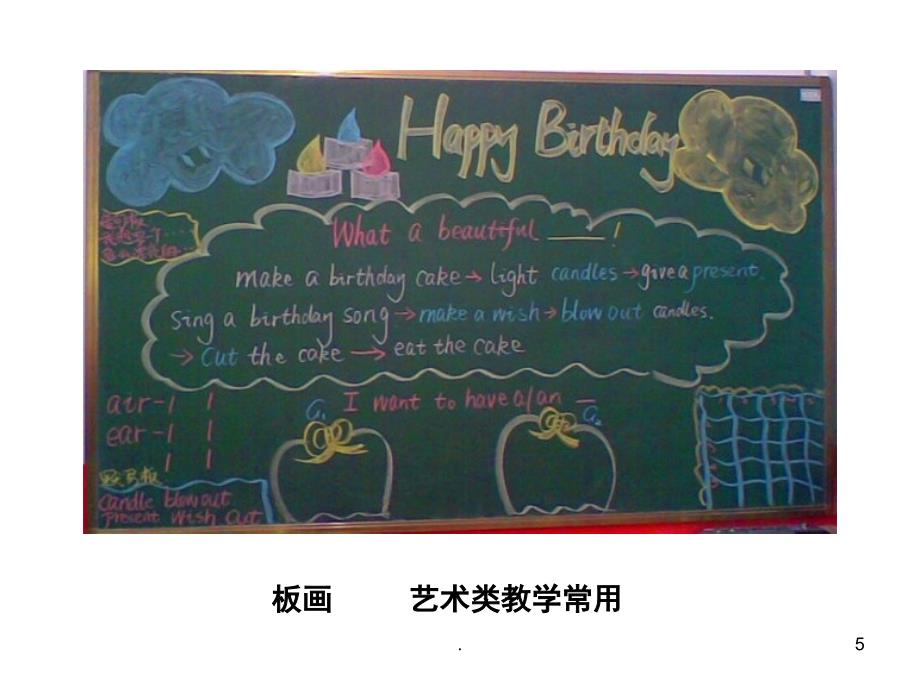 Happy Birthday
What a beautiful ____!
make a birthday cake → light candles → give a present.
Sing a birthday song → make a wish → blow out candles.
→ Cut the cake → eat the cake
air -1 1
ear -1 1
1 1
I want to have a/an _
G1
G2
candle blow out
present wish cut
板画 艺术类教学常用
.
5